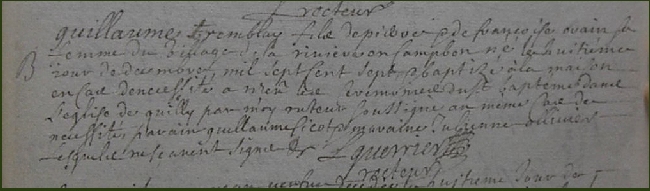 recteur
guillaume tremblay fils de pierre & de francoise ovain sa
femme du village de la riviere en Campbon ne le huitieme
B jour de decembre, mil sept sent sept & baptizé à la maison
en cas de necessité a les ceremonies du st baptesme dans
l'eglise de quilly par moy recteur soussigné au même cas de
necessité, parain guillaume sicot & maraine Julienne
lesquels ne scavent signer
guerrier
recteur
huitieme jour de